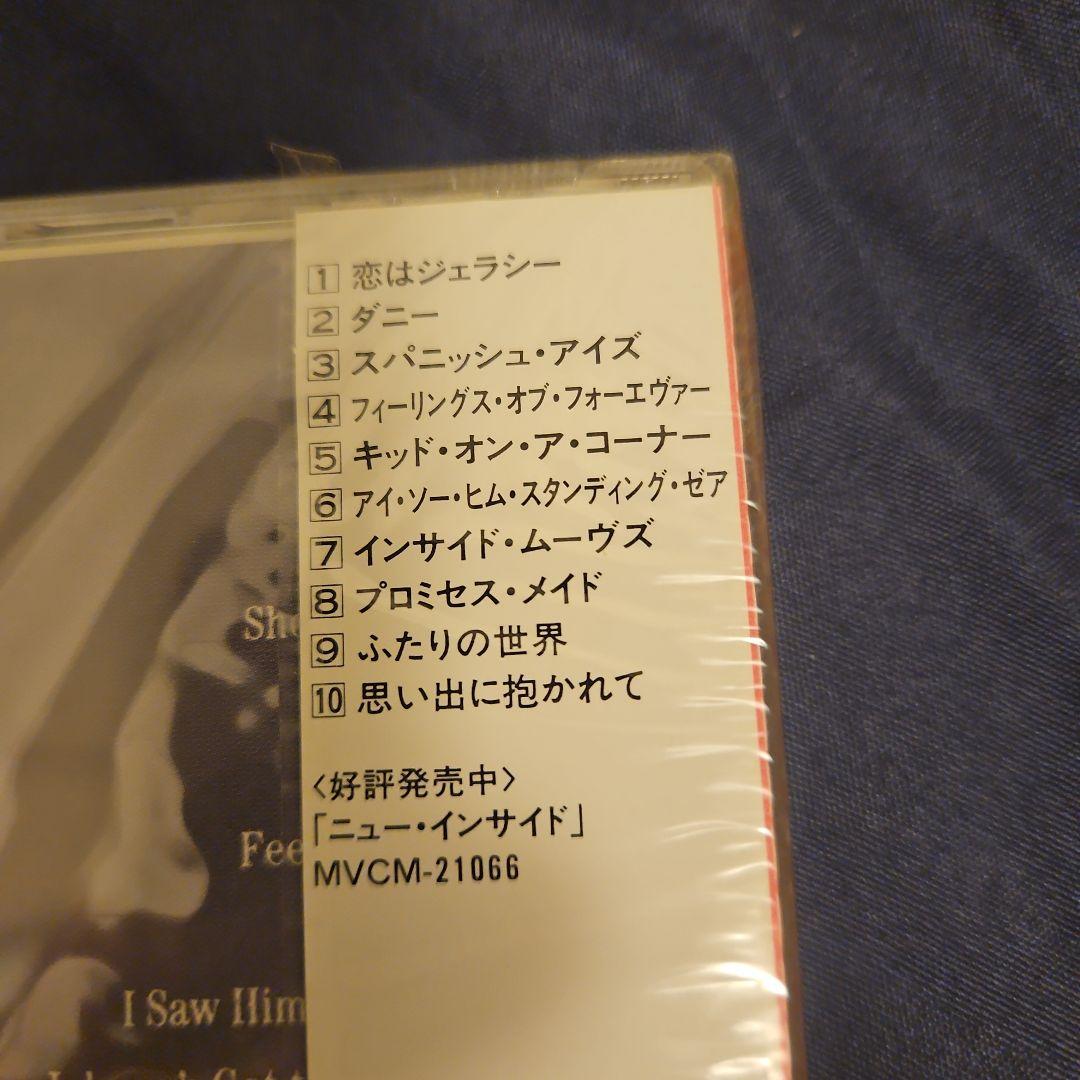 1 恋はジェラシー
2 ダニー
3 スパニッシュ・アイズ
4 フィーリングス・オブ・フォーエヴァー
5 キッド・オン・ア・コーナー
6 アイ・ソー・ヒム・スタンディング・ゼア
7 インサイド・ムーヴズ
8 プロミセス・メイド
9 ふたりの世界
10 思い出に抱かれて
〈好評発売中〉
「ニュー・インサイド」
MVCM-21066
She
Fee
I Saw Him